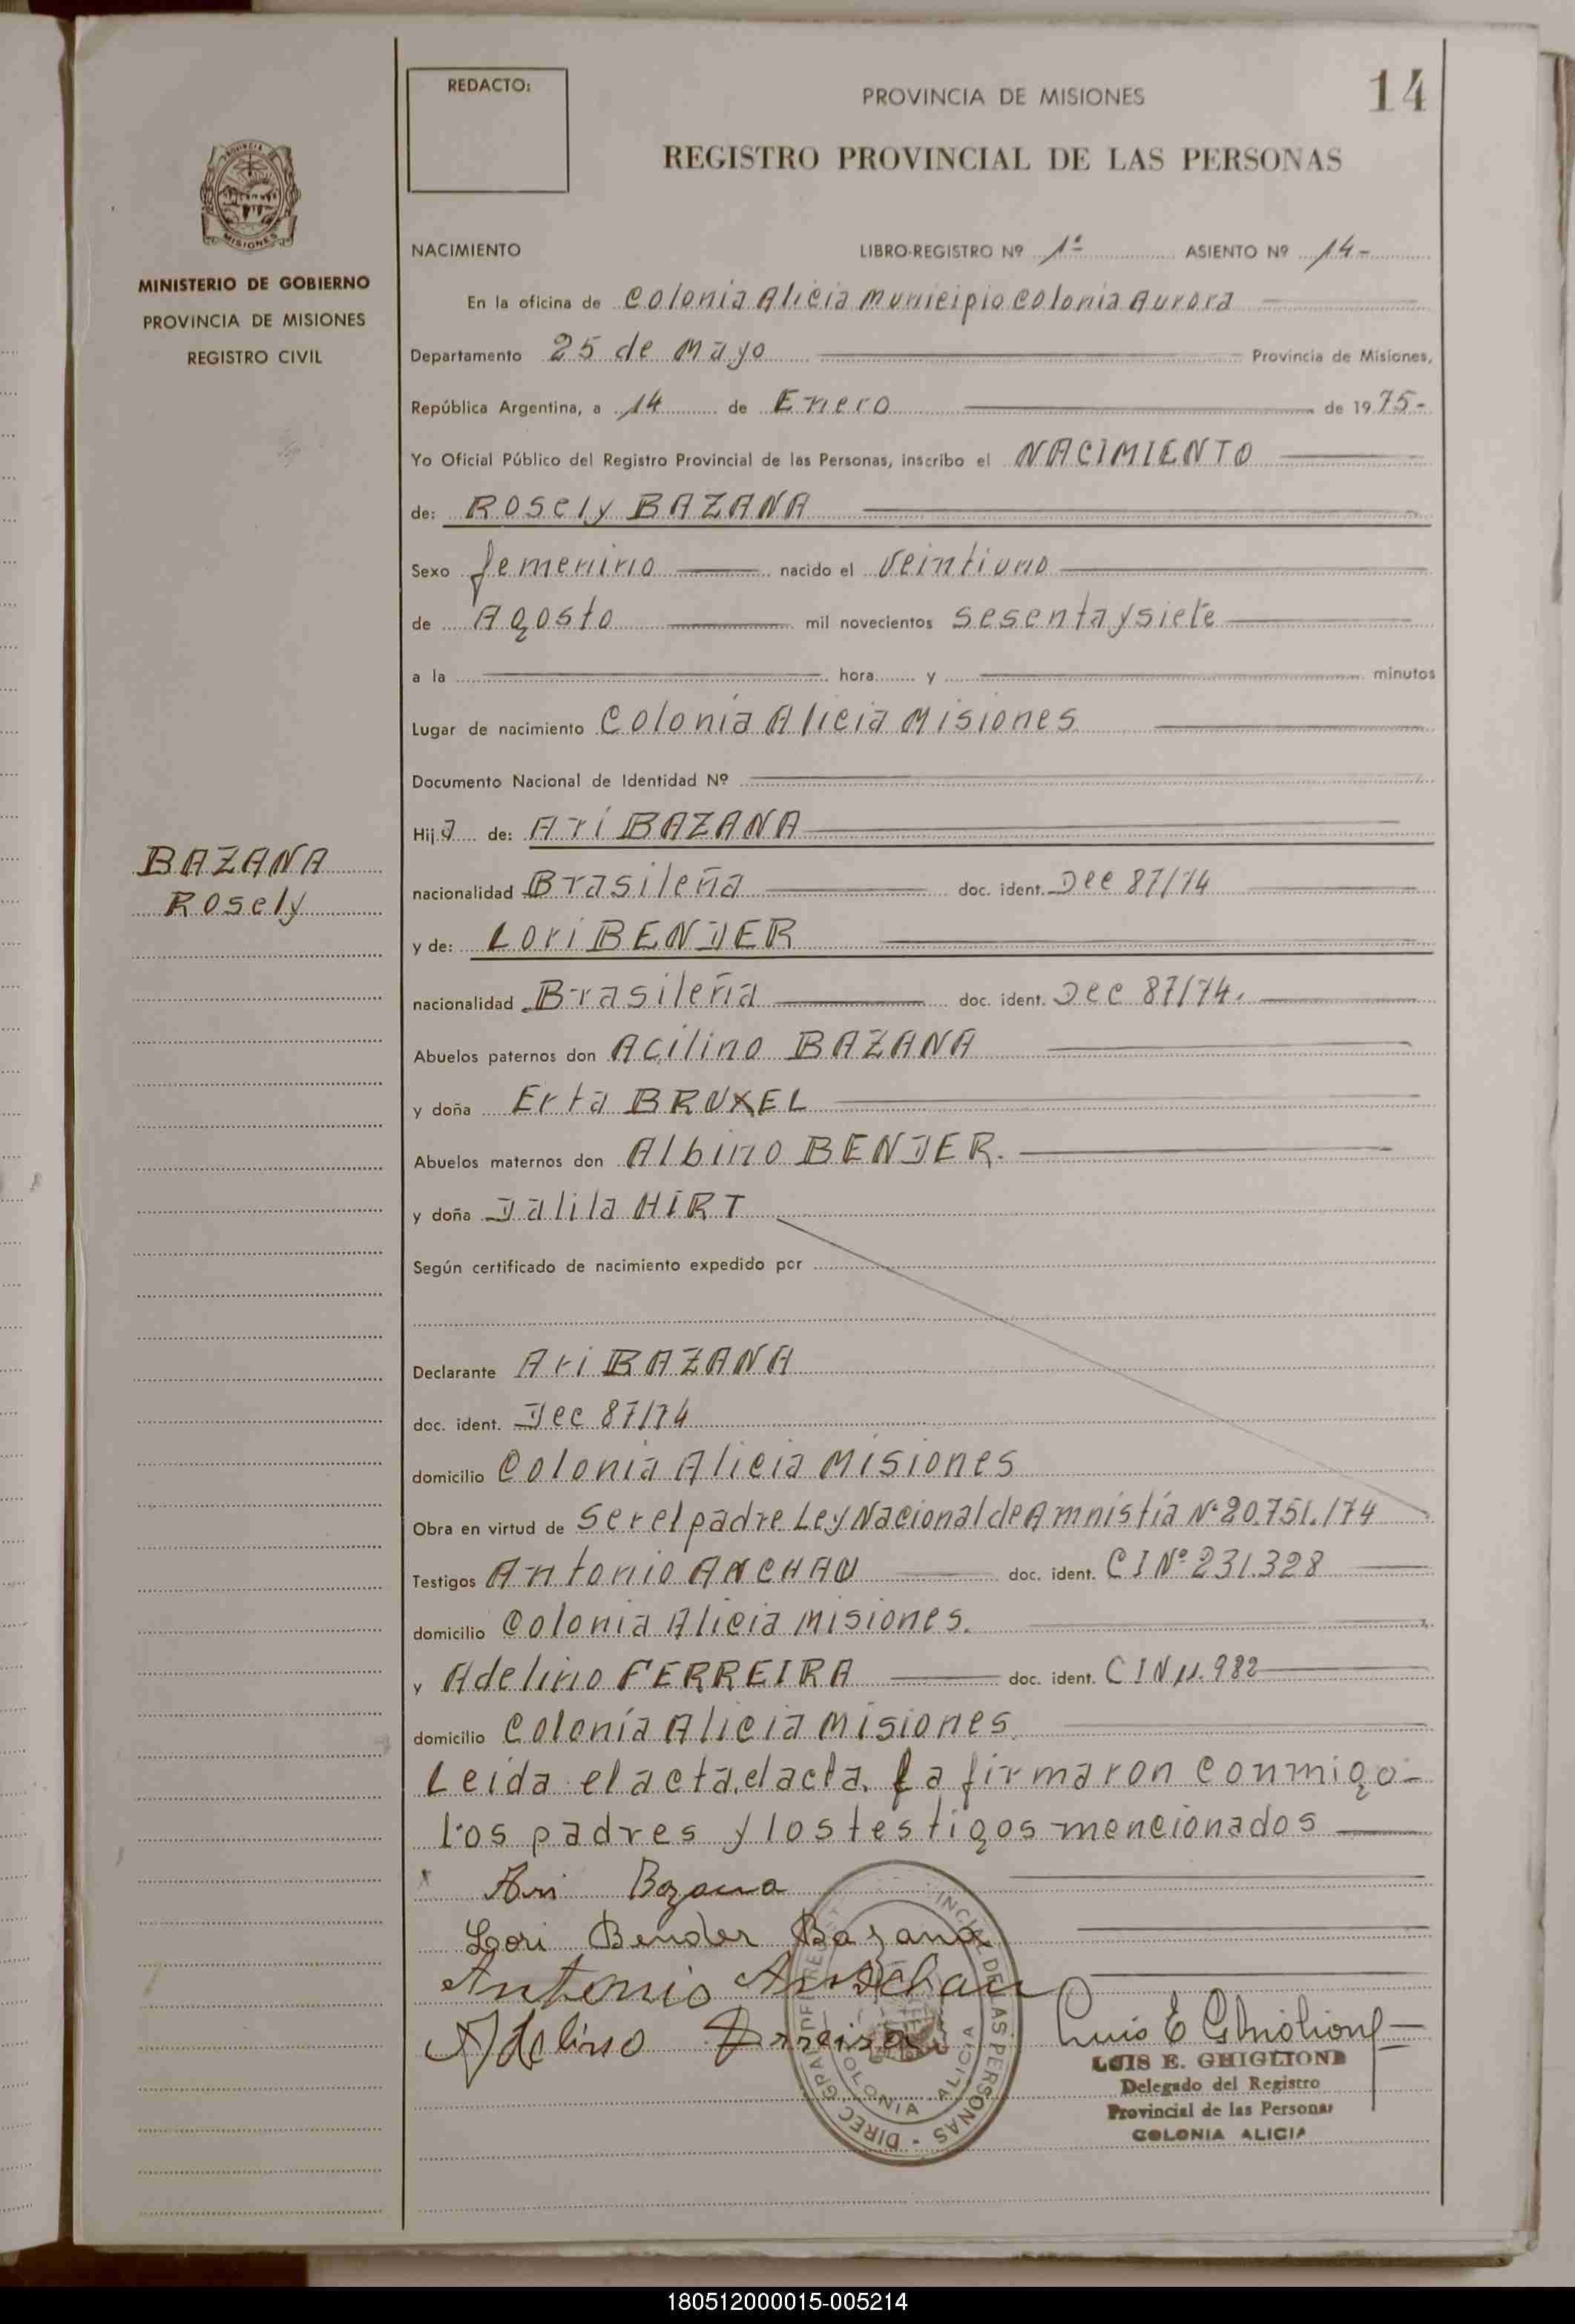 REDACTO:
PROVINCIA DE MISIONES
14
REGISTRO PROVINCIAL DE LAS PERSONAS
PROVINCIA DE
MISIONES
MINISTERIO DE GOBIERNO
PROVINCIA DE MISIONES
REGISTRO CIVIL
NACIMIENTO LIBRO-REGISTRO Nº 1º ASIENTO Nº 14-
En la oficina de Colonia Alicia Municipio Colonia Aurora
Departamento 25 de Mayo Provincia de Misiones,
República Argentina, a 14 de Enero de 1975-
Yo Oficial Público del Registro Provincial de las Personas, inscribo el NACIMIENTO
de: Rosely BAZANA
Sexo femenino nacido el veintiuno
de Agosto mil novecientos sesenta y siete
a la hora y minutos
Lugar de nacimiento Colonia Alicia Misiones
Documento Nacional de Identidad Nº
Hija de: Ari BAZANA
BAZANA
Rosely
nacionalidad Brasileña doc. ident. Dec 87/74
y de: Lori BENDER
nacionalidad Brasileña doc. ident. Dec 87/74.
Abuelos paternos don Acilino BAZANA
y doña Erta BRUXEL
Abuelos maternos don Albino BENDER.
y doña Dalila HIRT
Según certificado de nacimiento expedido por
Declarante Ari BAZANA
doc. ident. Dec 87/74
domicilio Colonia Alicia Misiones
Obra en virtud de ser el padre Ley Nacional de Amnistía Nº 20.751./74
Testigos Antonio ANCHAU doc. ident. CI Nº 231.328
domicilio Colonia Alicia Misiones.
y Adelino FERREIRA doc. ident. CIN 11.982
domicilio Colonía Alicia Misiones.
Leida el acta, el acta. La firmaron conmigo-
los padres y los testigos mencionados
x Ari Bazana
Lori Bender Bazana
Antonio Anschau
Adelino Ferreira
Luis E Ghiglione
LUIS E. GHIGLIONE
Delegado del Registro
Provincial de las Personas
COLONIA ALICIA
COLONIA ALICIA
180512000015-005214